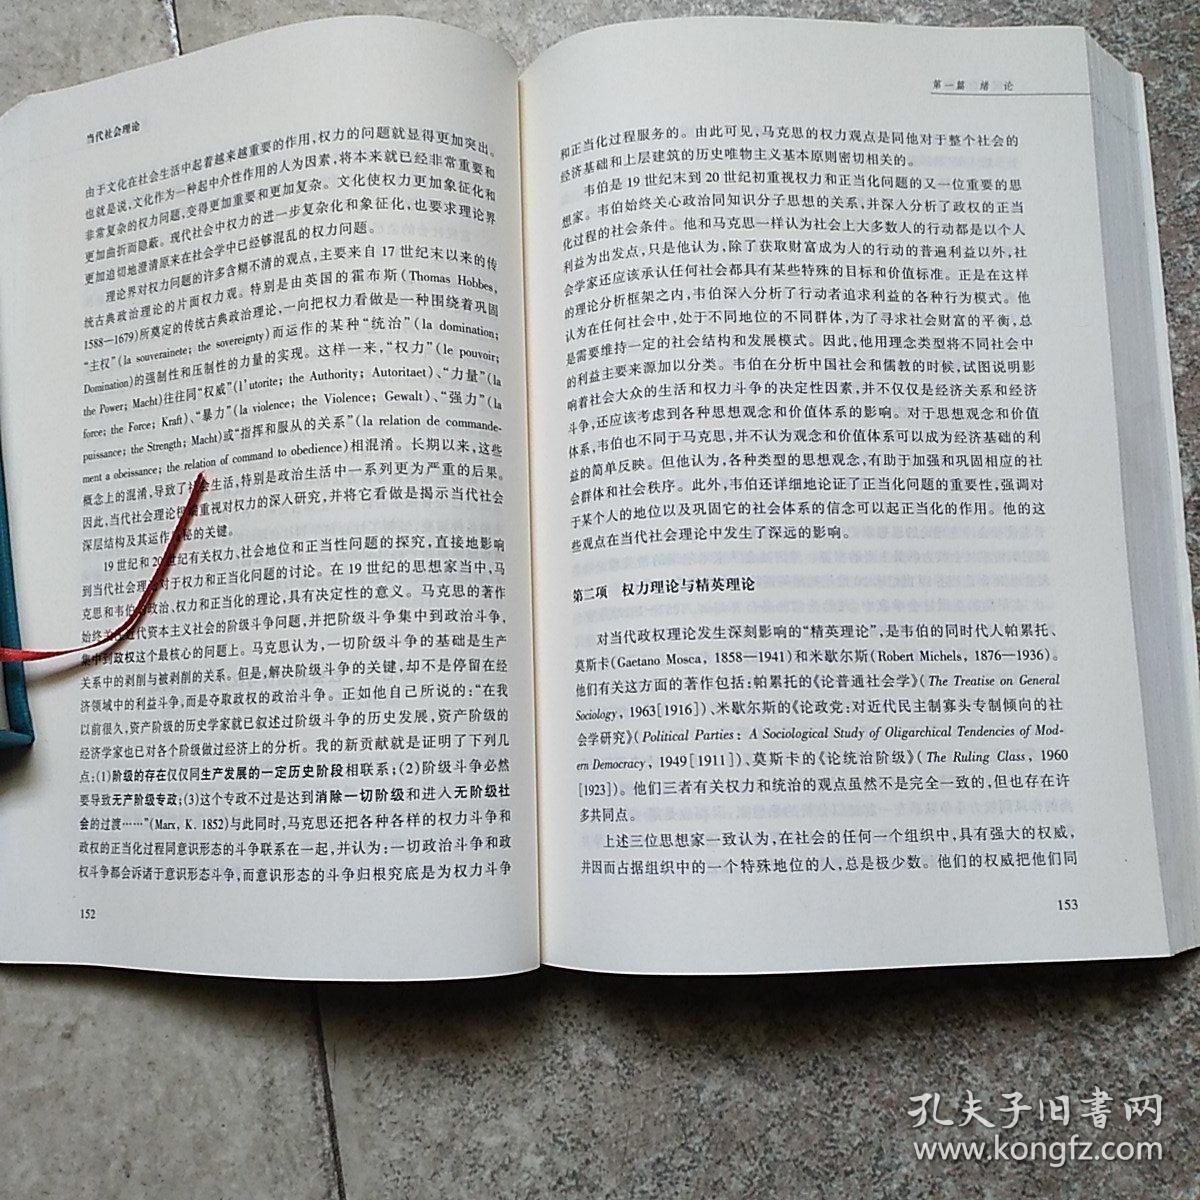 当代社会理论
由于文化在社会生活中起着越来越重要的作用，权力的问题就显得更加突出。
也就是说，文化作为一种起中介性作用的人为因素，将本来就已经非常重要和
非常复杂的权力问题，变得更加重要和更加复杂。文化使权力更加象征化和
更加曲折而隐蔽。现代社会中权力的进一步复杂化和象征化，也要求理论界
更加迫切地澄清原来在社会学中已经够混乱的权力问题。
理论界对权力问题的许多含糊不清的观点，主要来自 17 世纪末以来的传
统古典政治理论的片面权力观。特别是由英国的霍布斯(Thomas Hobbes,
1588—1679)所奠定的传统古典政治理论，一向把权力看做是一种围绕着巩固
“主权”(la souverainete; the sovereignty)而运作的某种“统治”(la domination;
Domination)的强制性和压制性的力量的实现。这样一来，“权力”(le pouvoir;
the Power; Macht)往往同“权威”(l'utorite; the Authority; Autoritaet)、“力量”(la
force; the Force; Kraft)、“暴力”(la violence; the Violence; Gewalt)、“强力”(la
puissance; the Strength; Macht)或“指挥和服从的关系”(la relation de commande-
ment a obeissance; the relation of command to obedience)相混淆。长期以来，这些
概念上的混淆，导致了社会生活，特别是政治生活中一系列更为严重的后果。
因此，当代社会理论很重视对权力的深入研究，并将它看做是揭示当代社会
深层结构及其运作奥秘的关键。
19 世纪和 20 世纪有关权力、社会地位和正当性问题的探究，直接地影响
到当代社会理论对于权力和正当化问题的讨论。在 19 世纪的思想家当中，马
克思和韦伯的政治、权力和正当化的理论，具有决定性的意义。马克思的著作
始终关注近代资本主义社会的阶级斗争问题，并把阶级斗争集中到政治斗争，
集中到政权这个最核心的问题上。马克思认为，一切阶级斗争的基础是生产
关系中的剥削与被剥削的关系。但是，解决阶级斗争的关键，却不是停留在经
济领域中的利益斗争，而是夺取政权的政治斗争。正如他自己所说的：“在我
以前很久，资产阶级的历史学家就已叙述过阶级斗争的历史发展，资产阶级的
经济学家也已对各个阶级做过经济上的分析。我的新贡献就是证明了下列几
点：(1)阶级的存在仅仅同生产发展的一定历史阶段相联系；(2)阶级斗争必然
要导致无产阶级专政；(3)这个专政不过是达到消除一切阶级和进入无阶级社
会的过渡……”(Marx, K. 1852)与此同时，马克思还把各种各样的权力斗争和
政权的正当化过程同意识形态的斗争联系在一起，并认为：一切政治斗争和政
权斗争都会诉诸于意识形态斗争，而意识形态的斗争归根究底是为权力斗争
152
第一篇 绪 论
和正当化过程服务的。由此可见，马克思的权力观点是同他对于整个社会的
经济基础和上层建筑的历史唯物主义基本原则密切相关的。
韦伯是 19 世纪末到 20 世纪初重视权力和正当化问题的又一位重要的思
想家。韦伯始终关心政治同知识分子思想的关系，并深入分析了政权的正当
化过程的社会条件。他和马克思一样认为社会上大多数人的行动都是以个人
利益为出发点，只是他认为，除了获取财富成为人的行动的普遍利益以外，社
会学家还应该承认任何社会都具有某些特殊的目标和价值标准。正是在这样
的理论分析框架之内，韦伯深入分析了行动者追求利益的各种行为模式。他
认为在任何社会中，处于不同地位的不同群体，为了寻求社会财富的平衡，总
是需要维持一定的社会结构和发展模式。因此，他用理念类型将不同社会中
的利益主要来源加以分类。韦伯在分析中国社会和儒教的时候，试图说明影
响着社会大众的生活和权力斗争的决定性因素，并不仅仅是经济关系和经济
斗争，还应该考虑到各种思想观念和价值体系的影响。对于思想观念和价值
体系，韦伯也不同于马克思，并不认为观念和价值体系可以成为经济基础的利
益的简单反映。但他认为，各种类型的思想观念，有助于加强和巩固相应的社
会群体和社会秩序。此外，韦伯还详细地论证了正当化问题的重要性，强调对
于某个人的地位以及巩固它的社会体系的信念可以起正当化的作用。他的这
些观点在当代社会理论中发生了深远的影响。
第二项 权力理论与精英理论
对当代政权理论发生深刻影响的“精英理论”，是韦伯的同时代人帕累托、
莫斯卡(Gaetano Mosca, 1858—1941)和米歇尔斯(Robert Michels, 1876—1936)。
他们有关这方面的著作包括：帕累托的《论普通社会学》(The Treatise on General
Sociology, 1963[1916])、米歇尔斯的《论政党：对近代民主制寡头专制倾向的社
会学研究》(Political Parties: A Sociological Study of Oligarchical Tendencies of Mod-
ern Democracy, 1949[1911])、莫斯卡的《论统治阶级》(The Ruling Class, 1960
[1923])。他们三者有关权力和统治的观点虽然不是完全一致的，但也存在许
多共同点。
上述三位思想家一致认为，在社会的任何一个组织中，具有强大的权威，
并因而占据组织中的一个特殊地位的人，总是极少数。他们的权威把他们同
153
孔夫子旧書网
www.kongfz.com